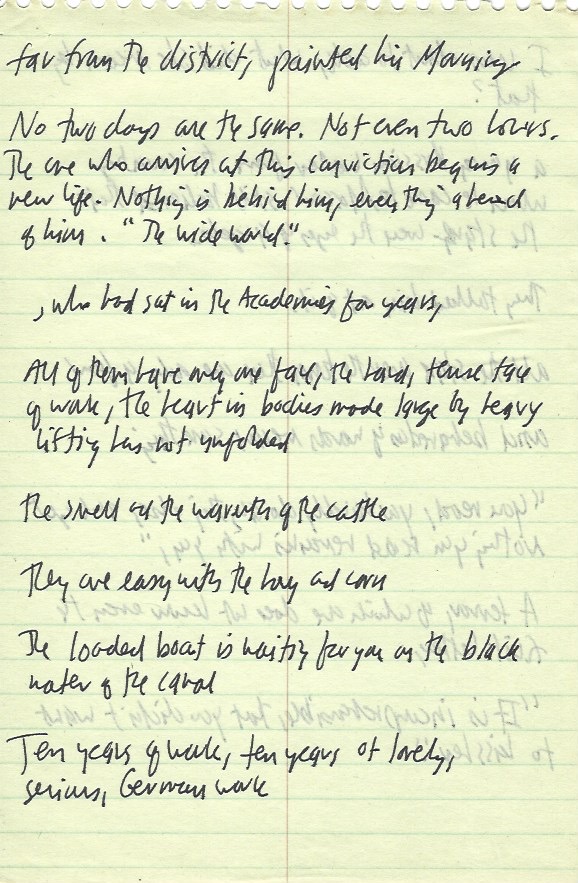 far from the district, painted his Morning
No two days are the same. Not even two hours.
The one who arrives at this conviction begins a
new life. Nothing is behind him, everything ahead
of him. "The wide world".
, who had sat in the Academies for years,
All of them have only one face, the hard, tense face
of work, the heart in bodies made large by heavy
lifting has not unfolded
the smell and the warmth of the cattle
They are easy with the hay and corn
The loaded boat is waiting for you on the black
water of the canal
Ten years of work, ten years of lovely,
serious, German work